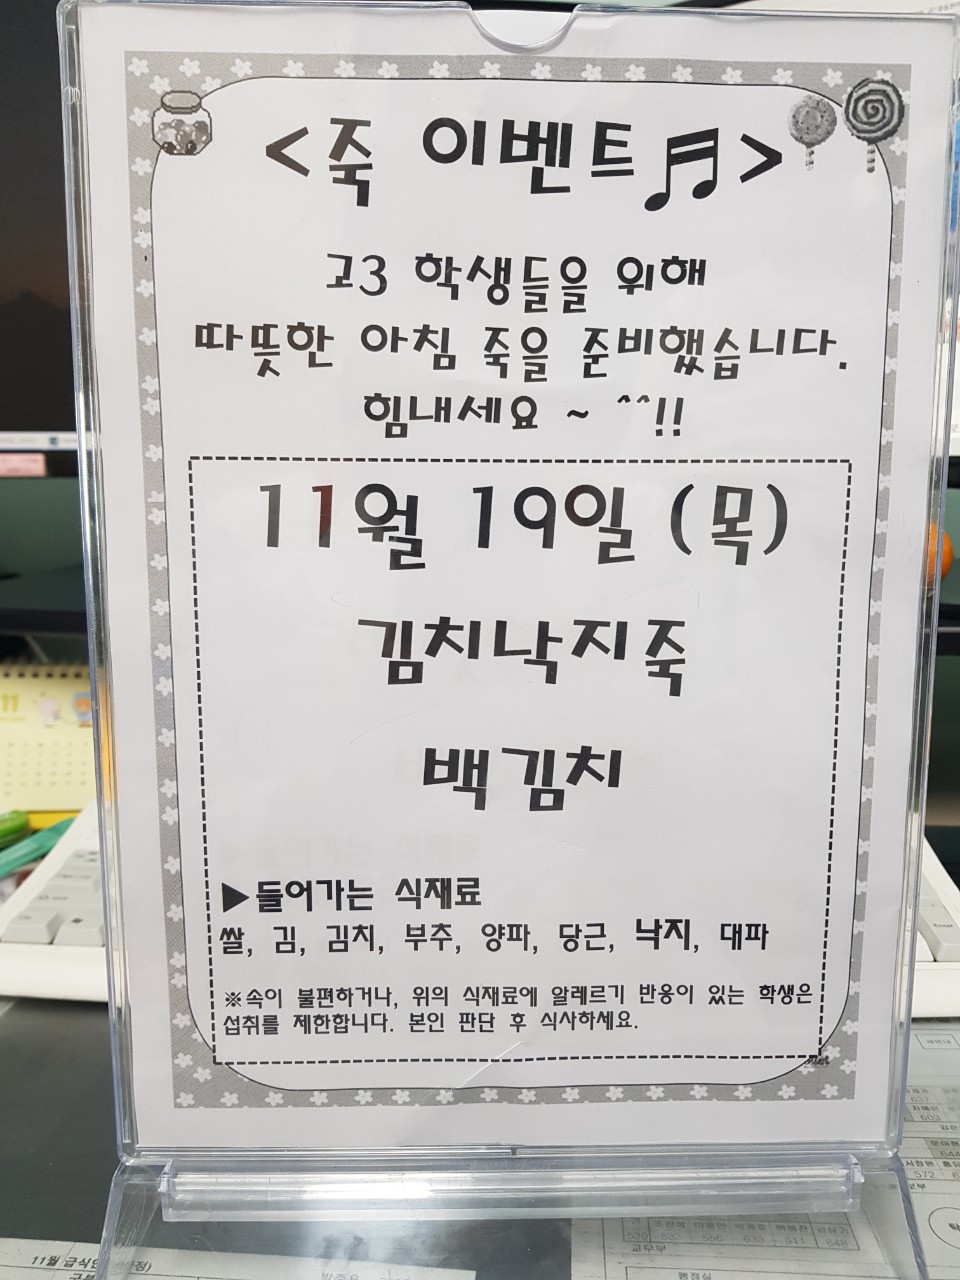 <죽 이벤트♬>
고3 학생들을 위해
따뜻한 아침 죽을 준비했습니다.
힘내세요 ~ ^^!!
11월 19일 (목)
김치낙지죽
백김치
▶들어가는 식재료
쌀, 김, 김치, 부추, 양파, 당근, 낙지, 대파
※속이 불편하거나, 위의 식재료에 알레르기 반응이 있는 학생은
섭취를 제한합니다. 본인 판단 후 식사하세요.
11
Enter
572
11월 급식
교무부
행정실